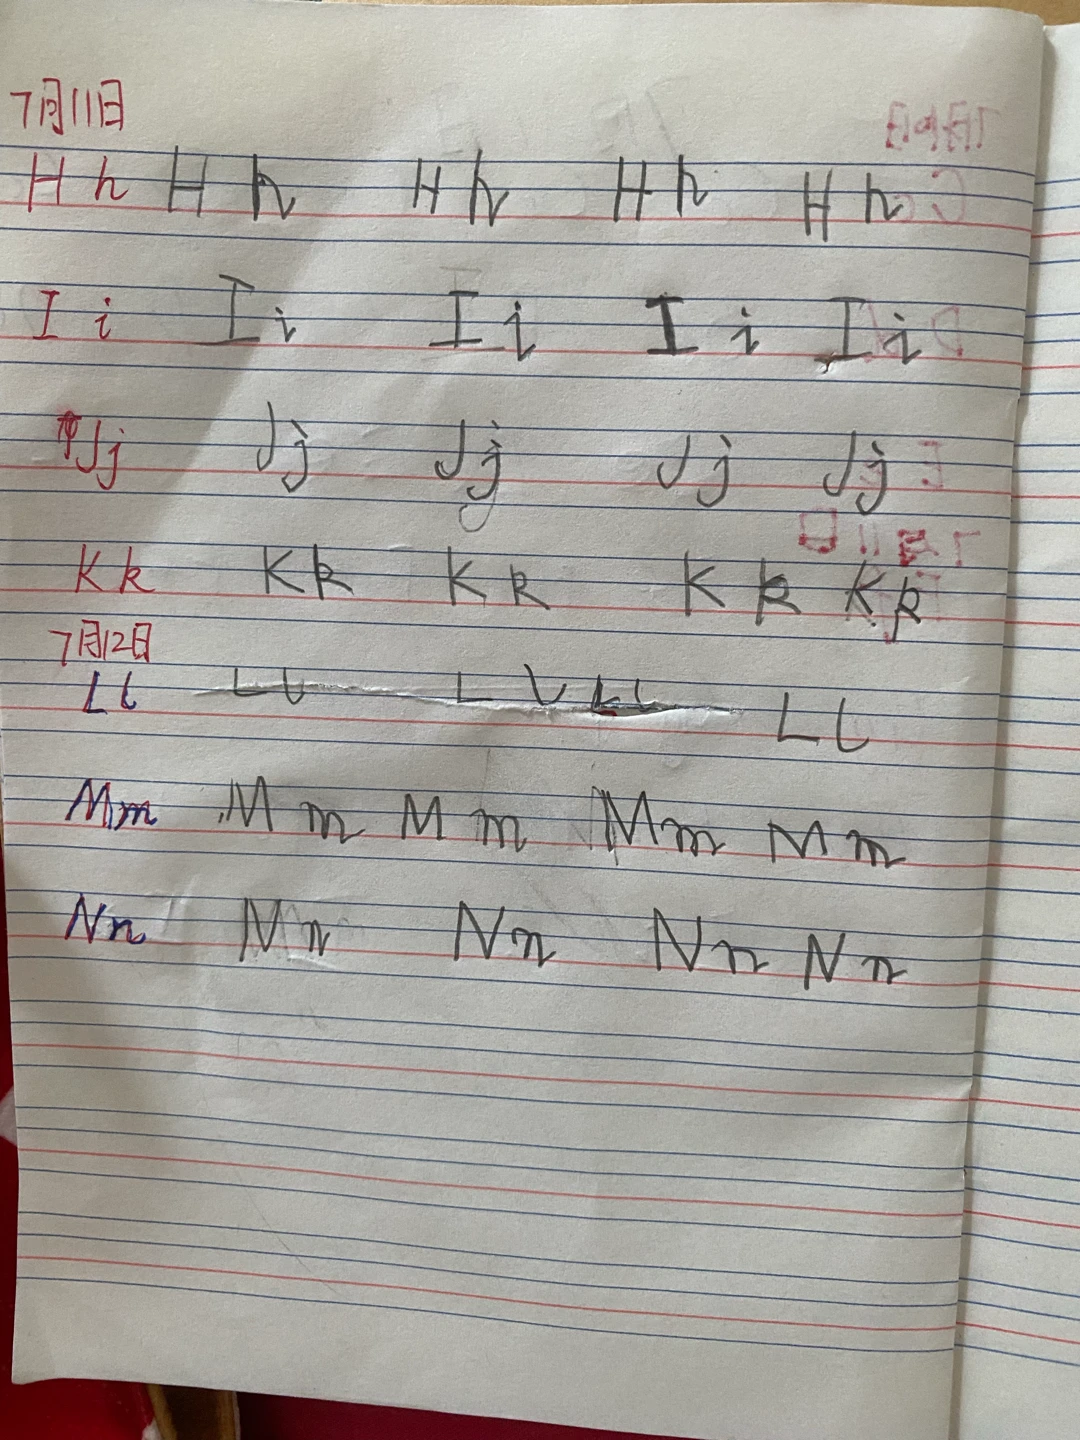 7月11日
H h H h H h H h H h
I i I i I i I i I i
J j J j J j J j J j
K k K k K k K k K k
7月12日
L l L l L l L l L l
M m M m M m M m M m
N n N n N n N n N n